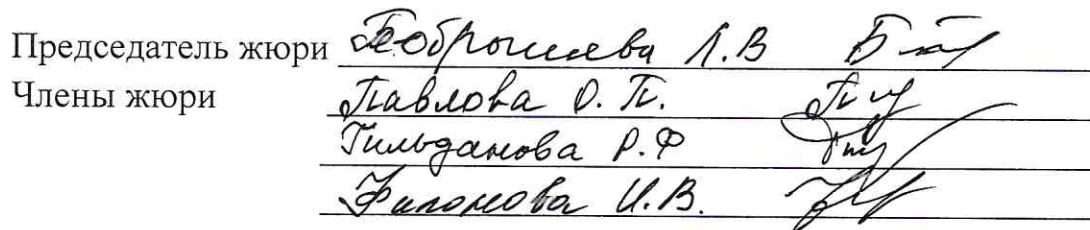 Председатель жюри Бобрышева Л.В
Члены жюри Павлова О.П.
Гильданова Р.Ф
Филонова И.В.